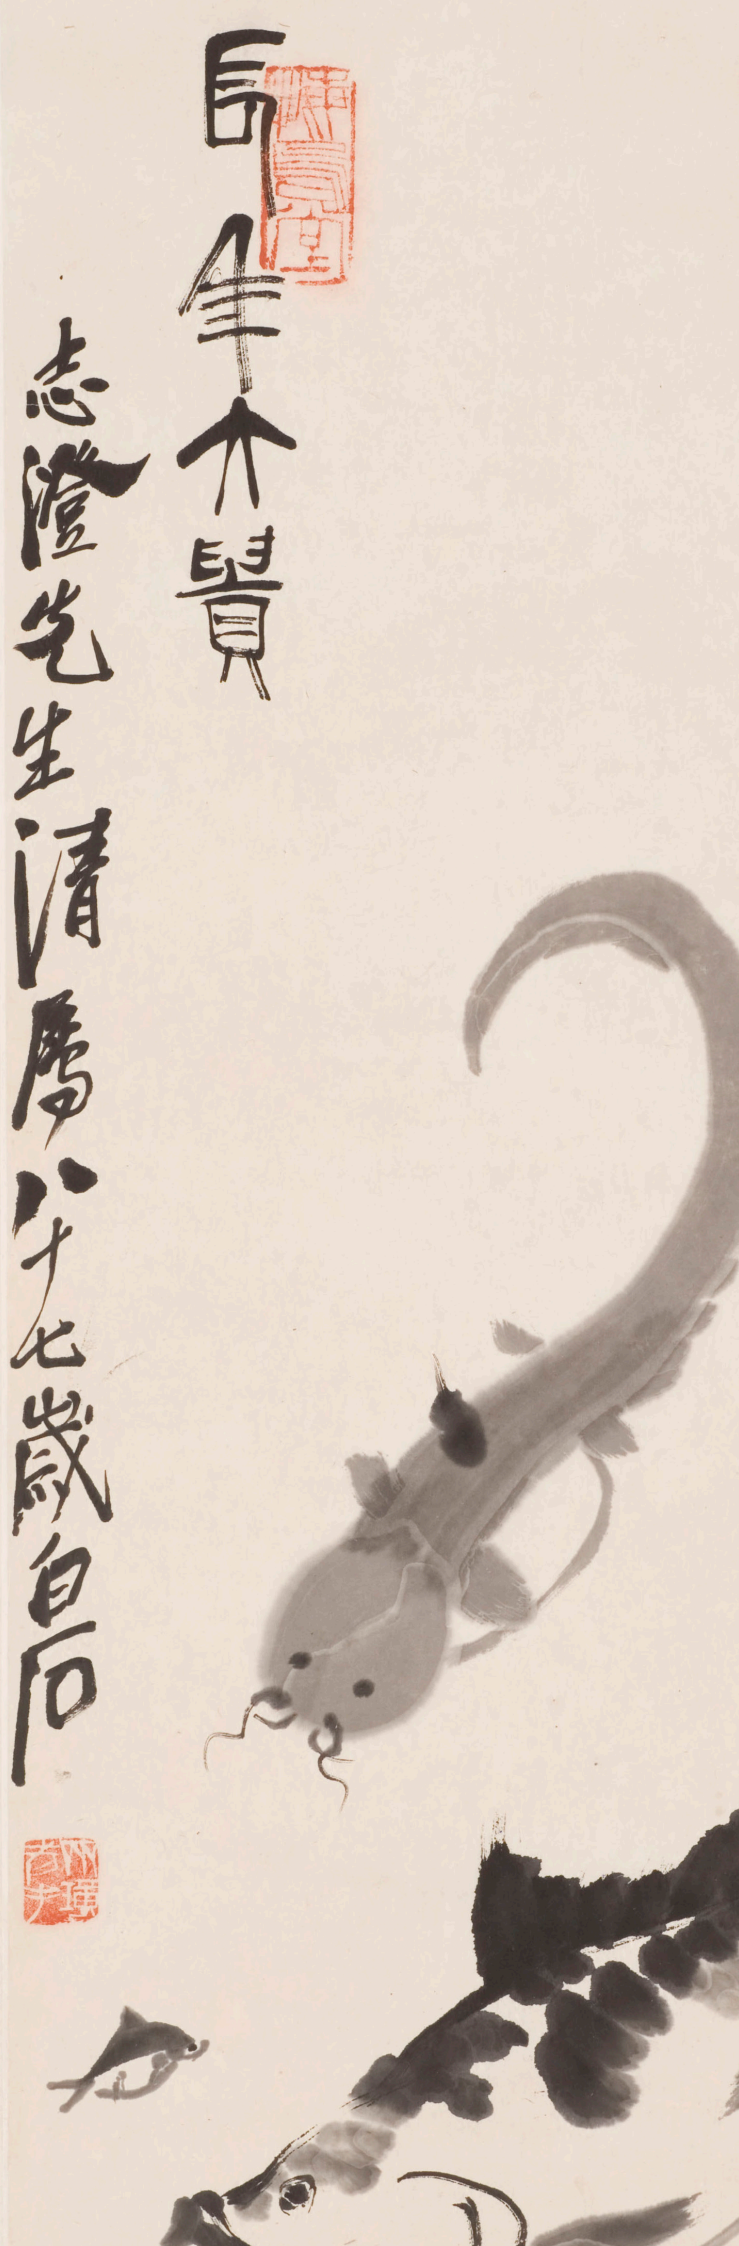 長年大貴
志澄先生清屬八十七歲白石
悔烏堂